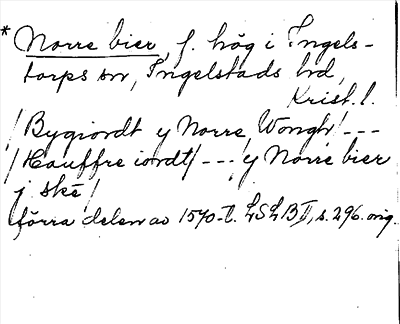 * Norre bier, f. hög i Ingels-
torps sn, Ingelstads hd,
Krist. l.
/Bygiordt y Norre Wongh/ ---
/Hauffre iordt/ --- /y Norre bier
j ske/
förra delen av 1570-t. LSLB II, s. 296. orig.